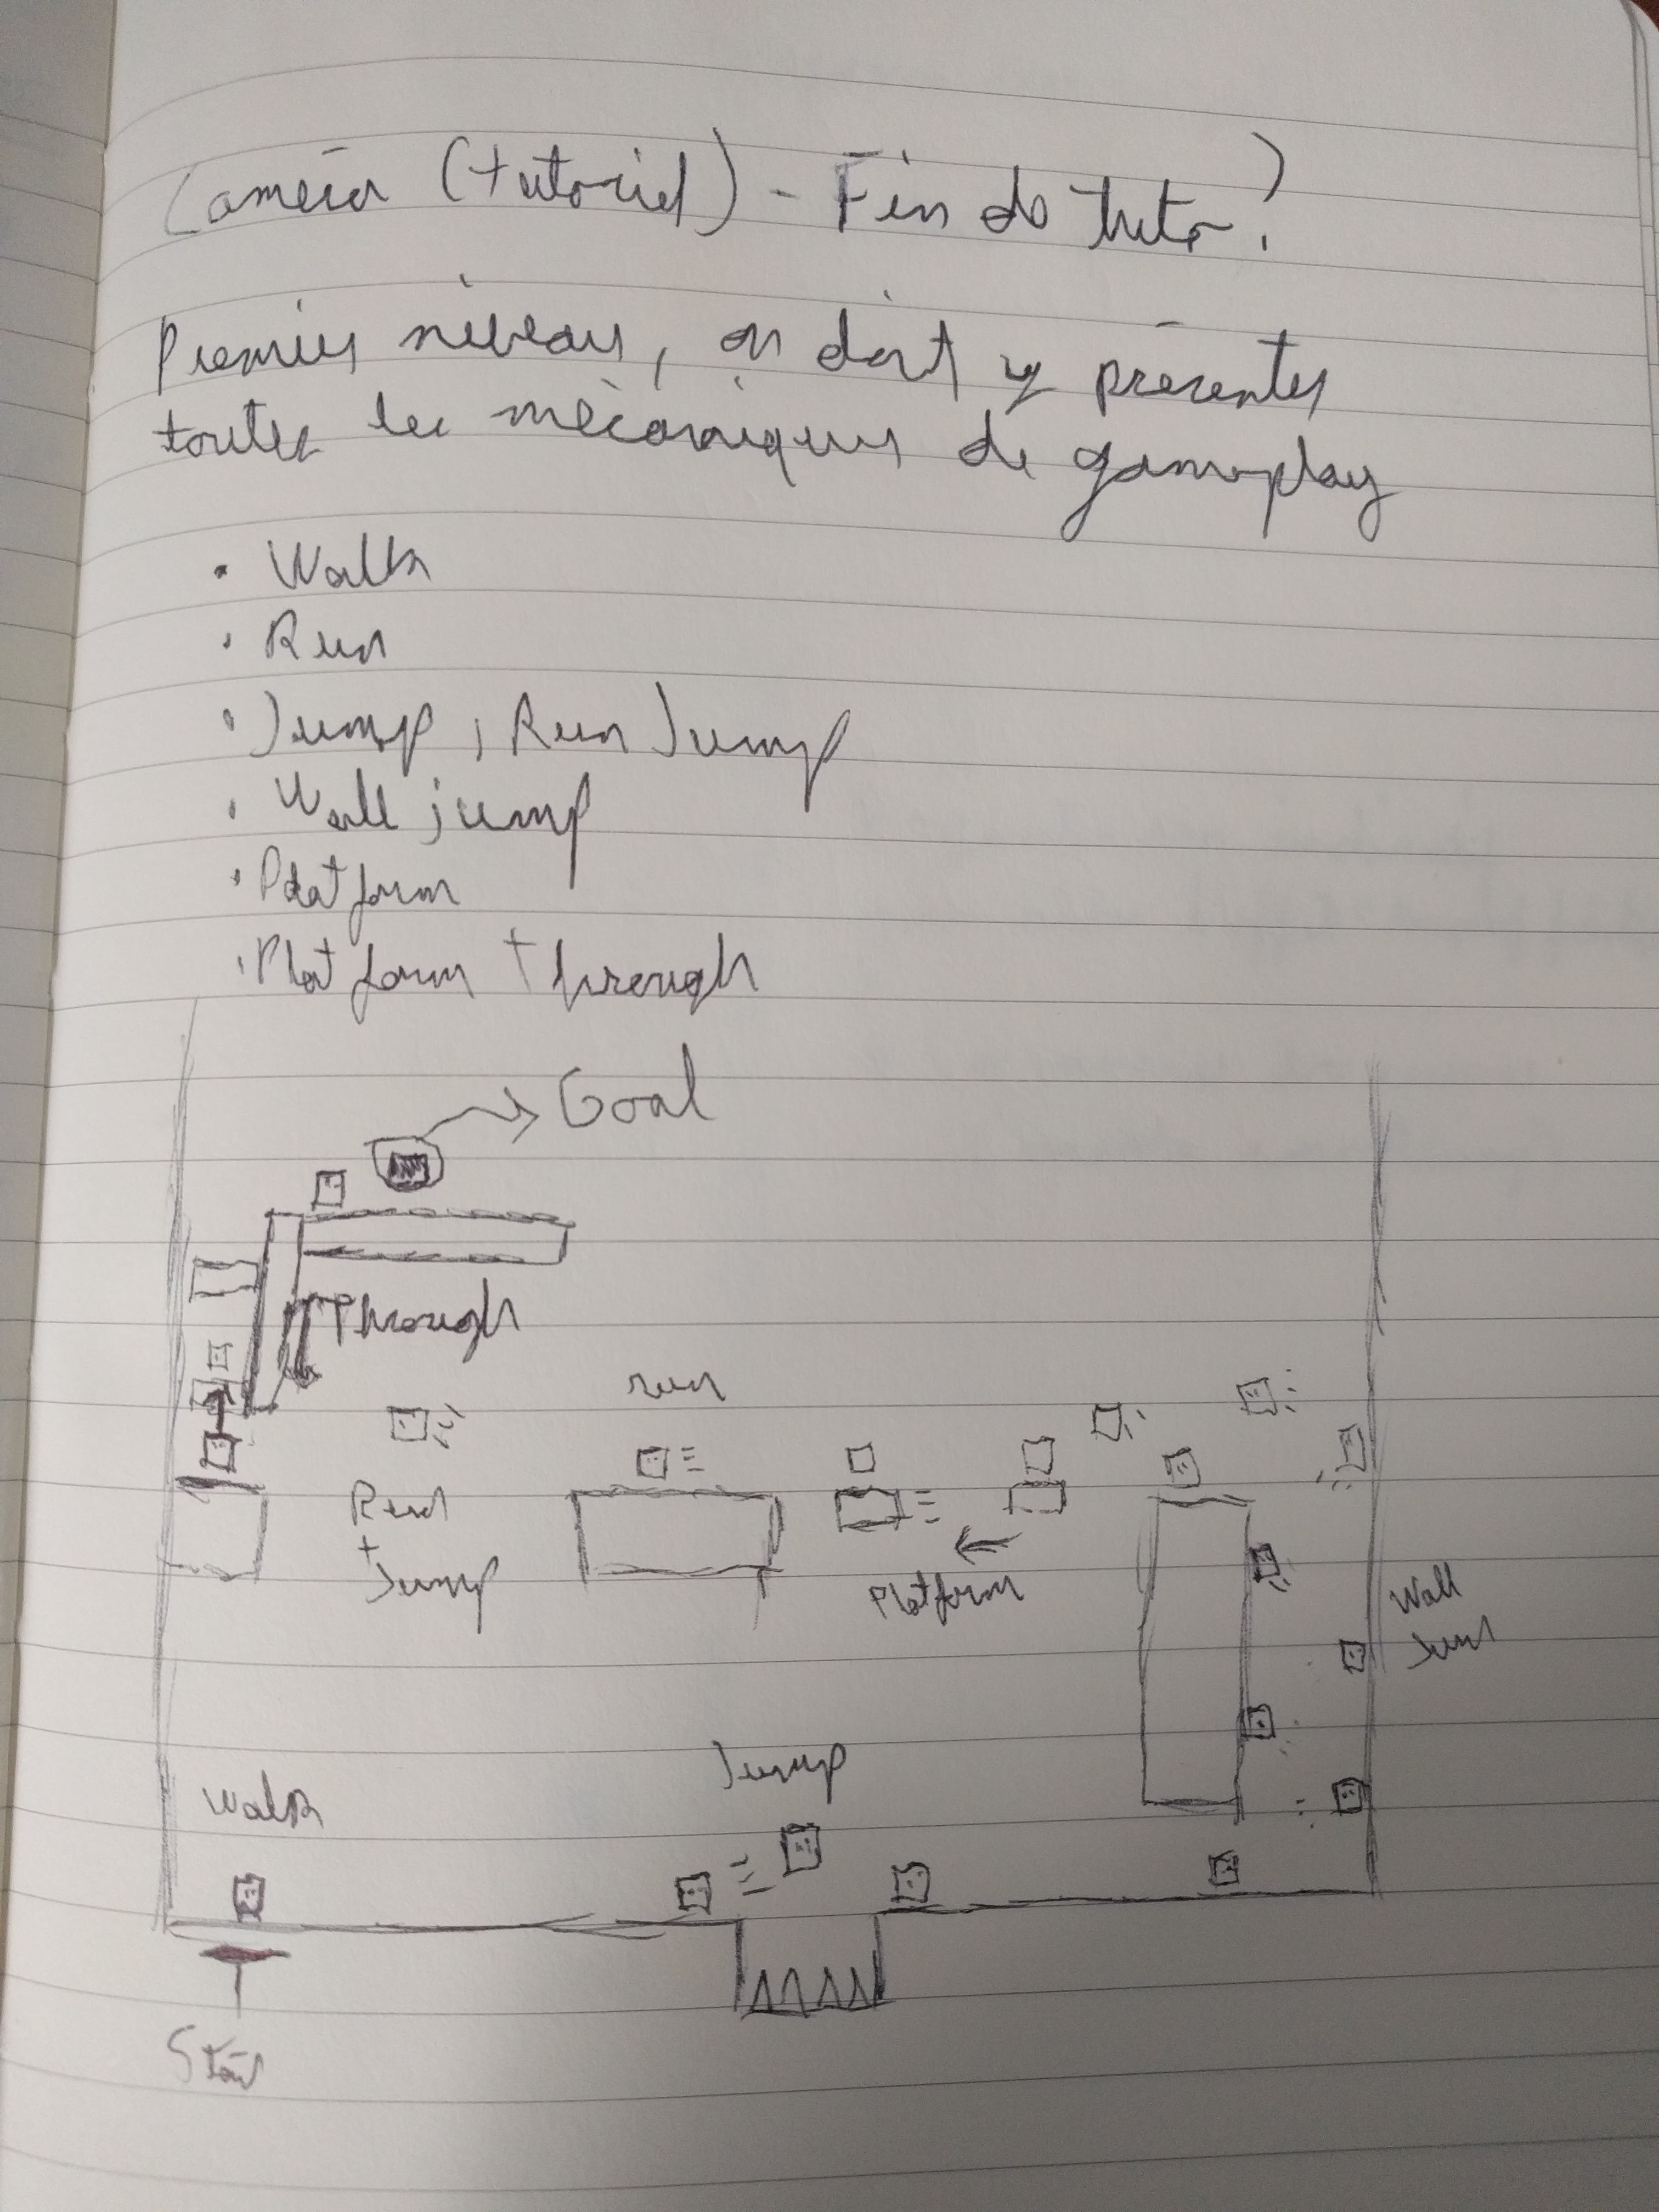 Caméra (tutoriel) - Fin de tuto ?
Premier niveau, on doit y présenter
toutes les mécaniques de gameplay
• Walk
• Run
• Jump, Run Jump
• Wall jump
• Platform
• Platform through
Goal
Through
run
Run
+
Jump
Platform
Wall
Jump
Walk
Start